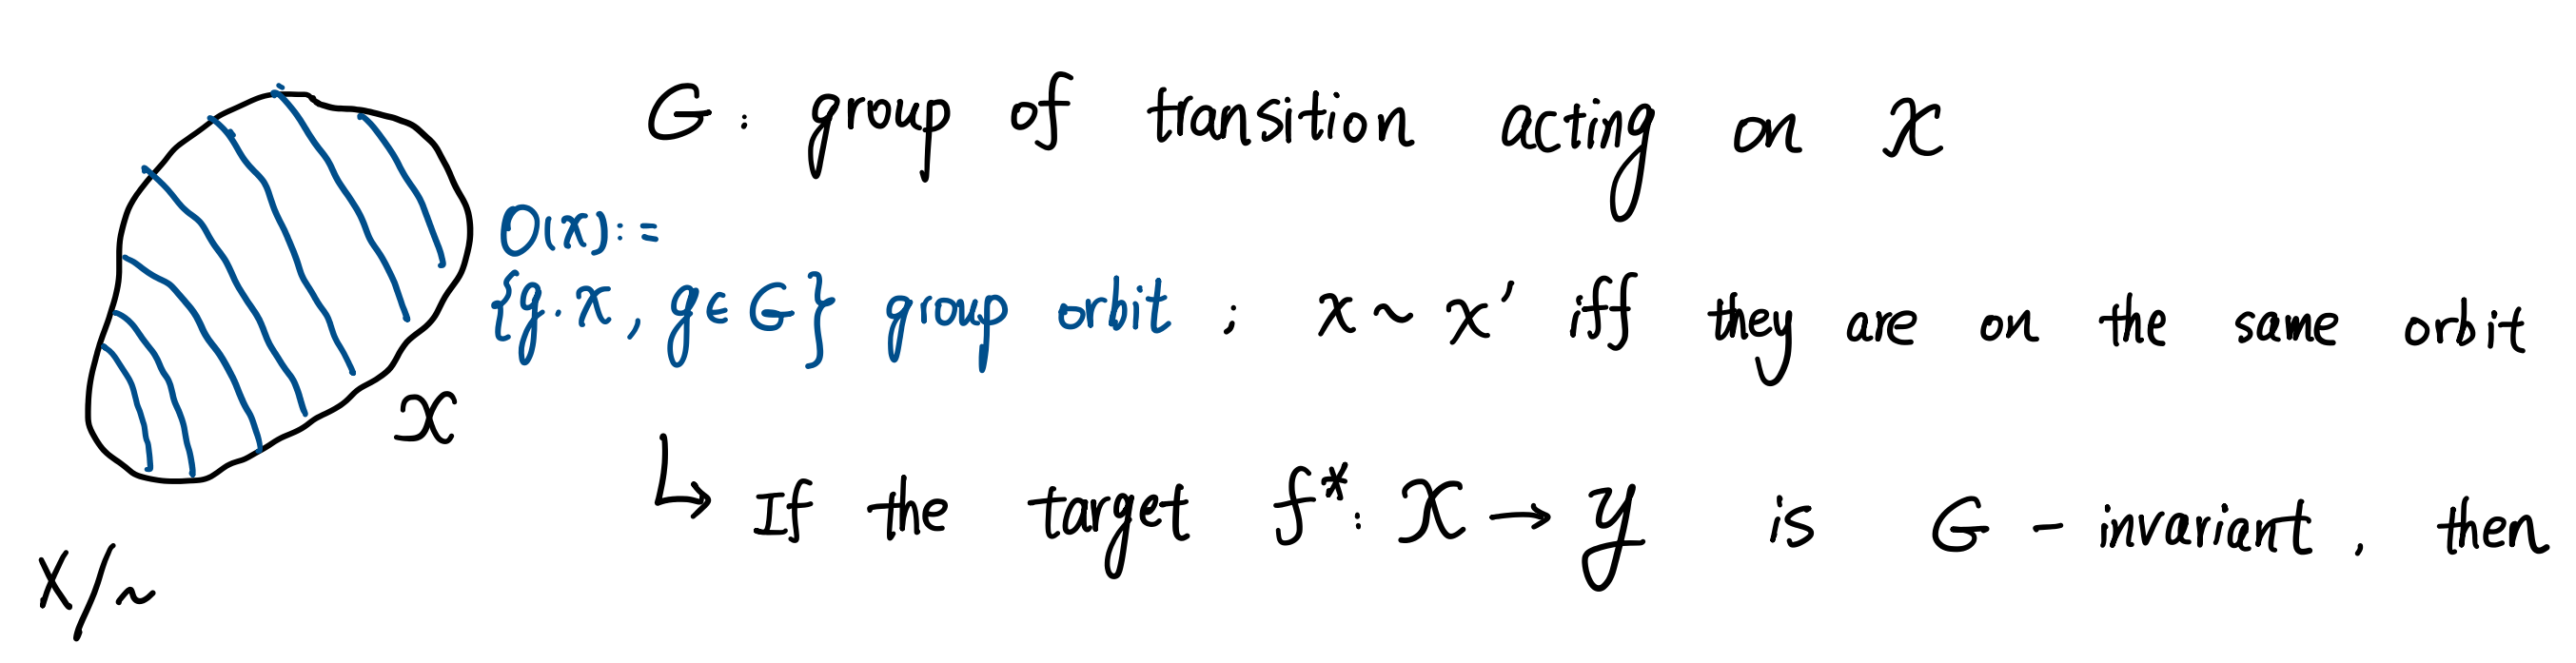 G : group of transition acting on X
O(x) :=
{g·x, g∈G} group orbit ; x ~ x' iff they are on the same orbit
X
↳ If the target f* : X → Y is G - invariant, then
X/~